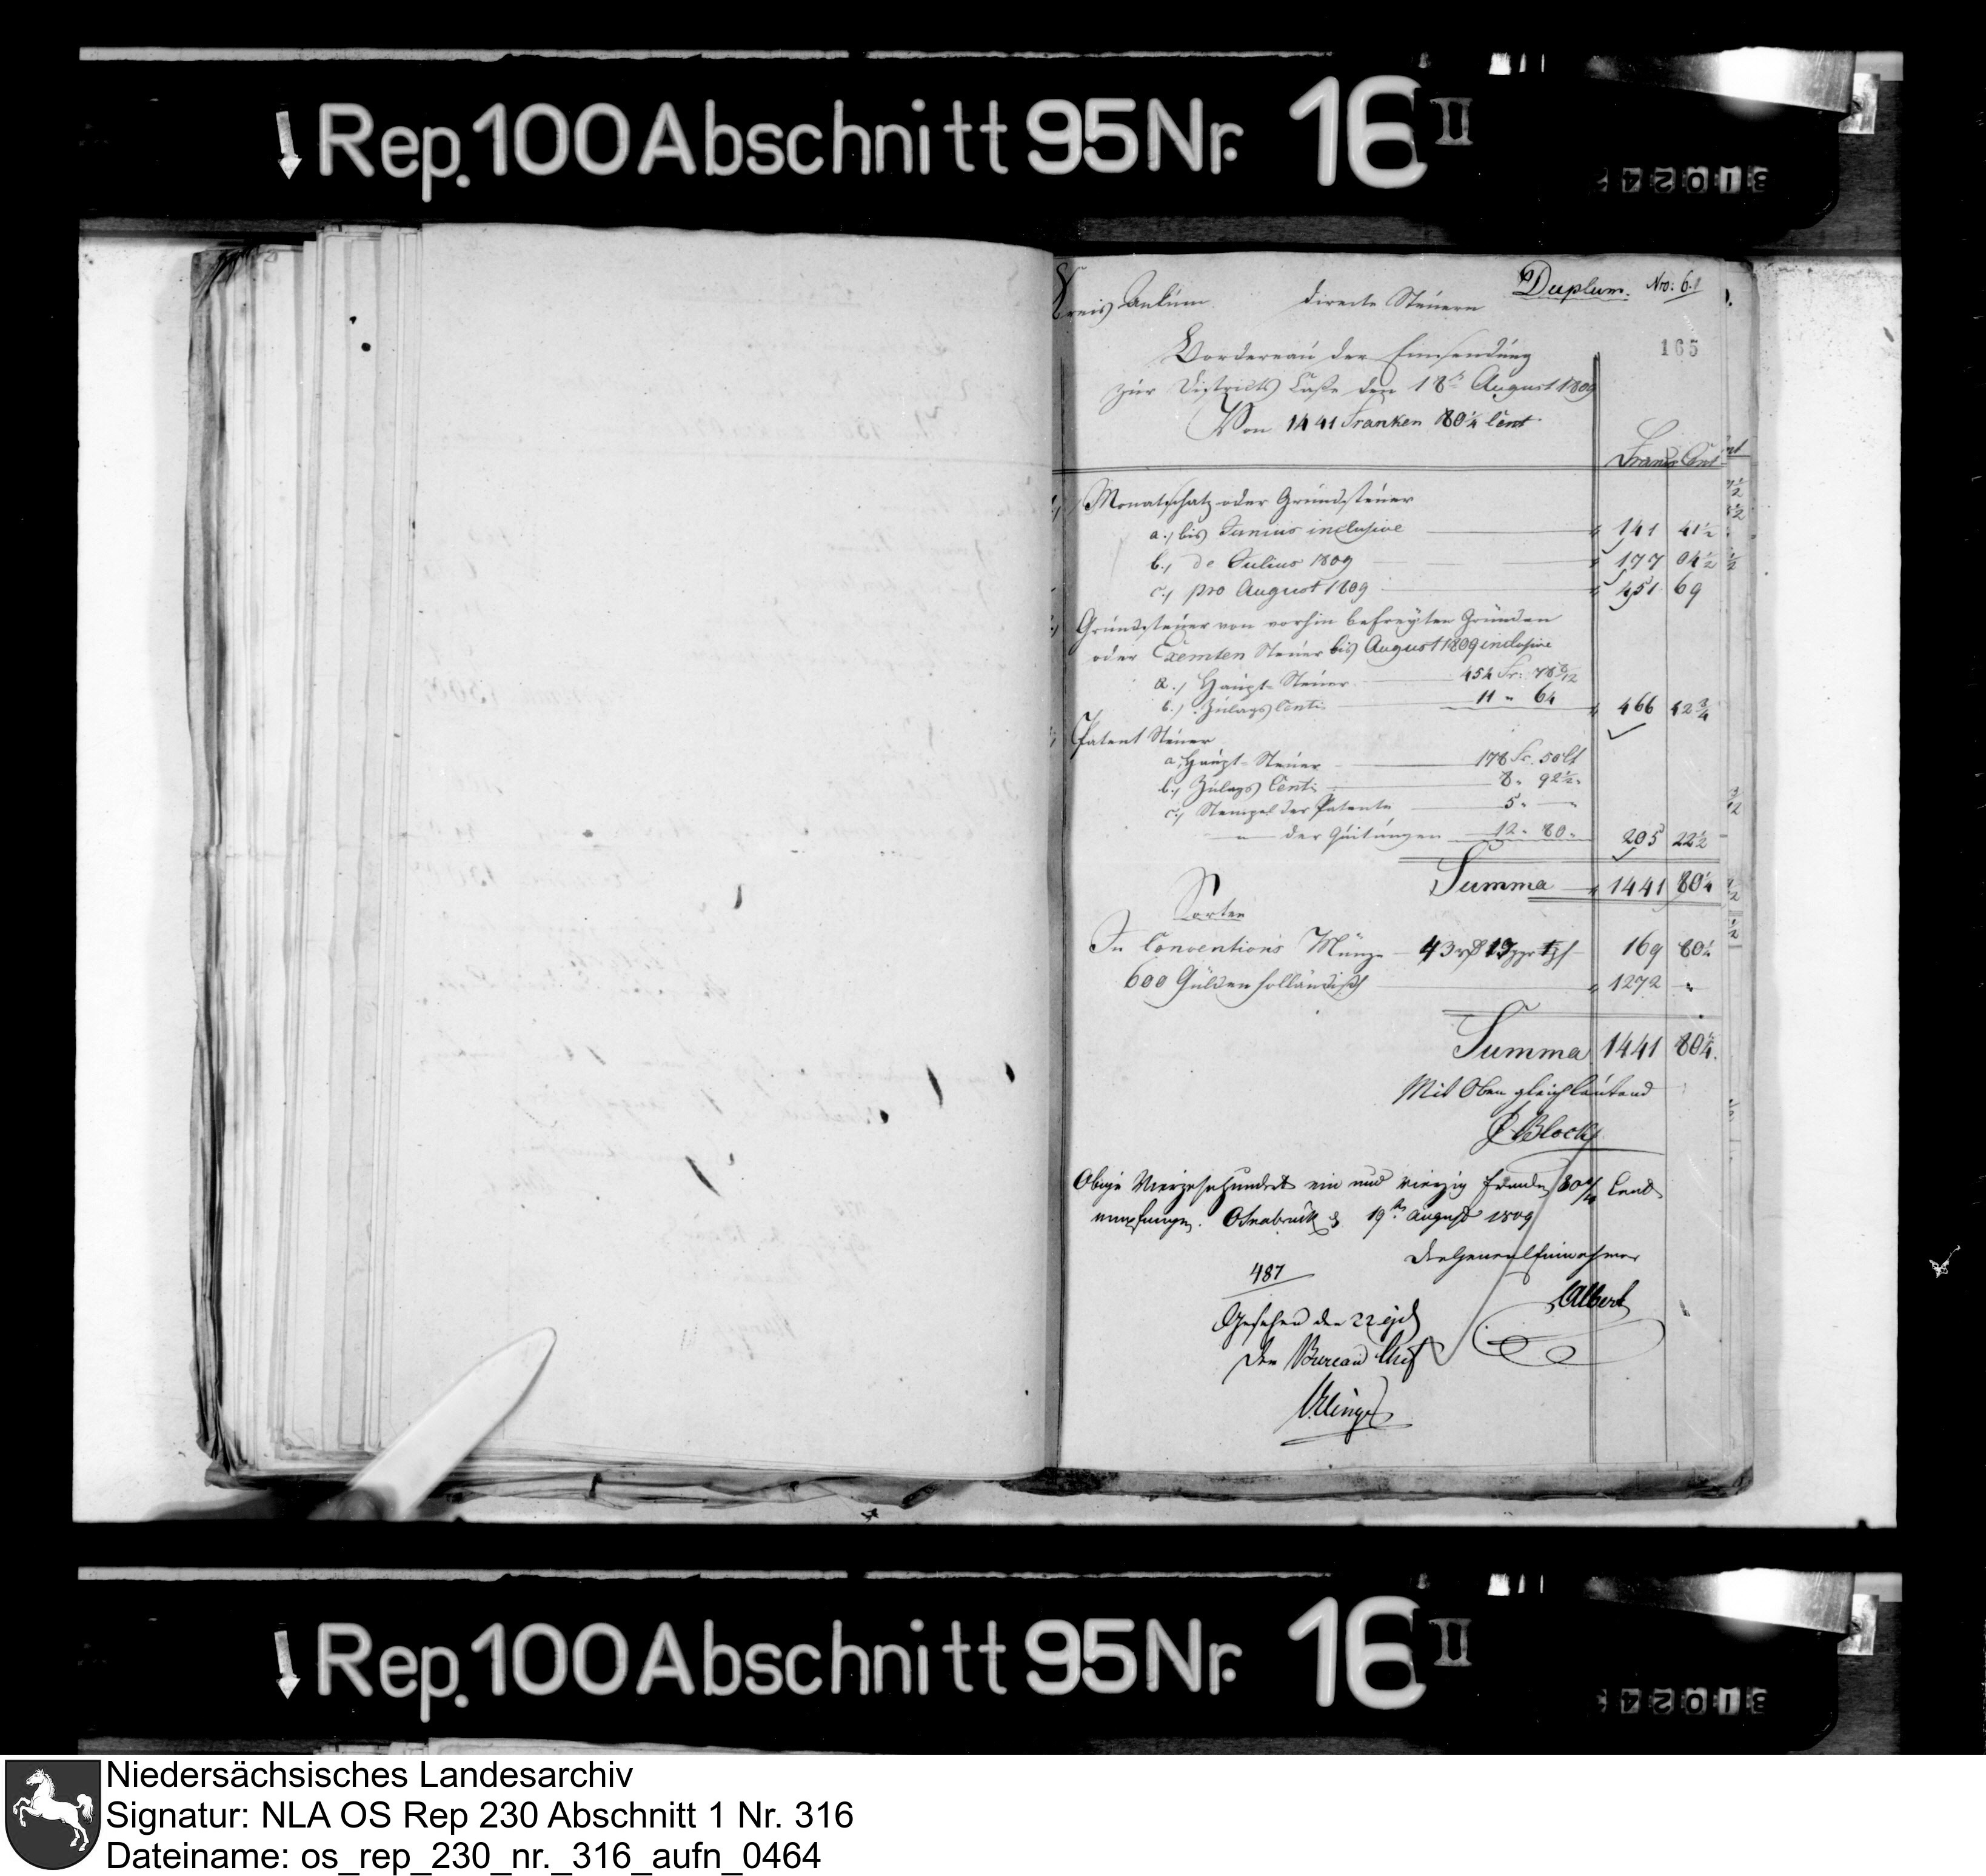 Rep. 100 Abschnitt 95 Nr. 16 II
Duplum. Nro: 61
Kreis Ankum directe Steuern
165
Bordereau der Einsendung
zur Districts Casse den 18t August 1809
Von 1441 Franken 80¼ Cent.
Francs Cent
Monatschatz oder Grundsteuer
a.) bis Junius inclusive 141 41½
b.) de Julius 1809 177 04½
c.) pro August 1809 451 69
Grundsteuer von vorhin befreyten Gründen
oder Exemten Steuer bis August 1809 inclusive
a.) Haupt-Steuer 454 Fr: 78 9/12
b.) Zulags Cent: 11 " 64 " 466 42¾
Patent Steuer
a.) Haupt-Steuer 178 Fr. 50 Ct
b.) Zulags Cent: 8 " 92½ "
c.) Stempel der Patente 5 " — "
" — der Quitungen 12 " 80 " 205 22½
Summa 1441 80¼
Sorten
In Conventions Münze 43 169 80¼
600 Gülden holländisch " 1272 "
Summa 1441 80¼
Mit Oben gleichlautend
Block
Obige Vierzehnhundert ein und vierzig Franken Cent
empfangen. Osnabrück d 19ten August 1809
Der General Einnehmer
Albert
487
Gesehen den 22 ejd
Der Bureau Chef
Rep. 100 Abschnitt 95 Nr. 16 II
Niedersächsisches Landesarchiv
Signatur: NLA OS Rep 230 Abschnitt 1 Nr. 316
Dateiname: os_rep_230_nr._316_aufn_0464